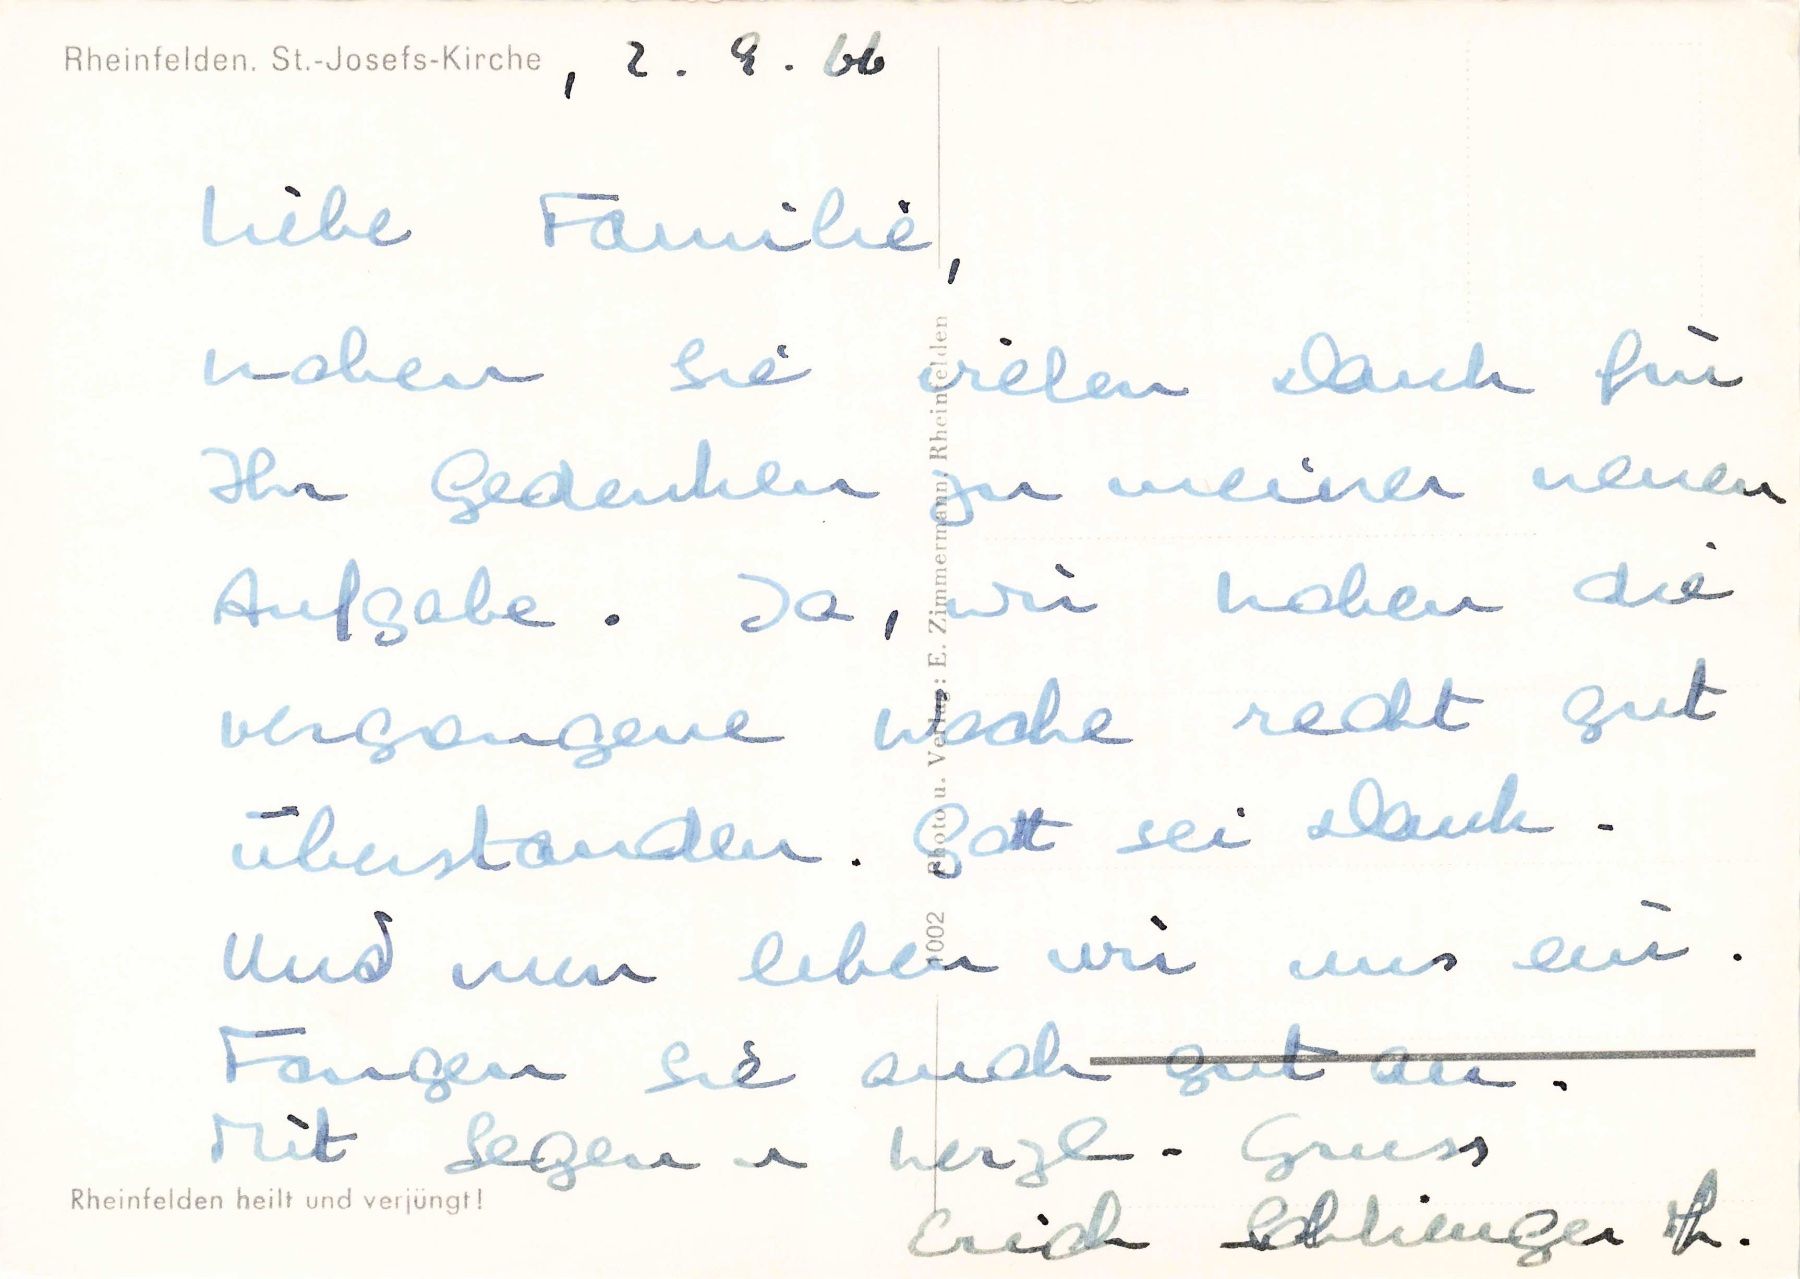 Rheinfelden. St.-Josefs-Kirche , 2. 9. 66
Liebe Familie,
haben Sie vielen Dank für
Ihr Gedenken zu meiner neuen
Aufgabe. Ja, wir haben die
vergangene Woche recht gut
überstanden. Gott sei Dank.
Und nun leben wir uns ein.
Fangen Sie auch gut an.
Mit Segen u herzl. Gruss
Erich Schlienger
Rheinfelden heilt und verjüngt!
1002 Photo u. Verlag: E. Zimmermann, Rheinfelden